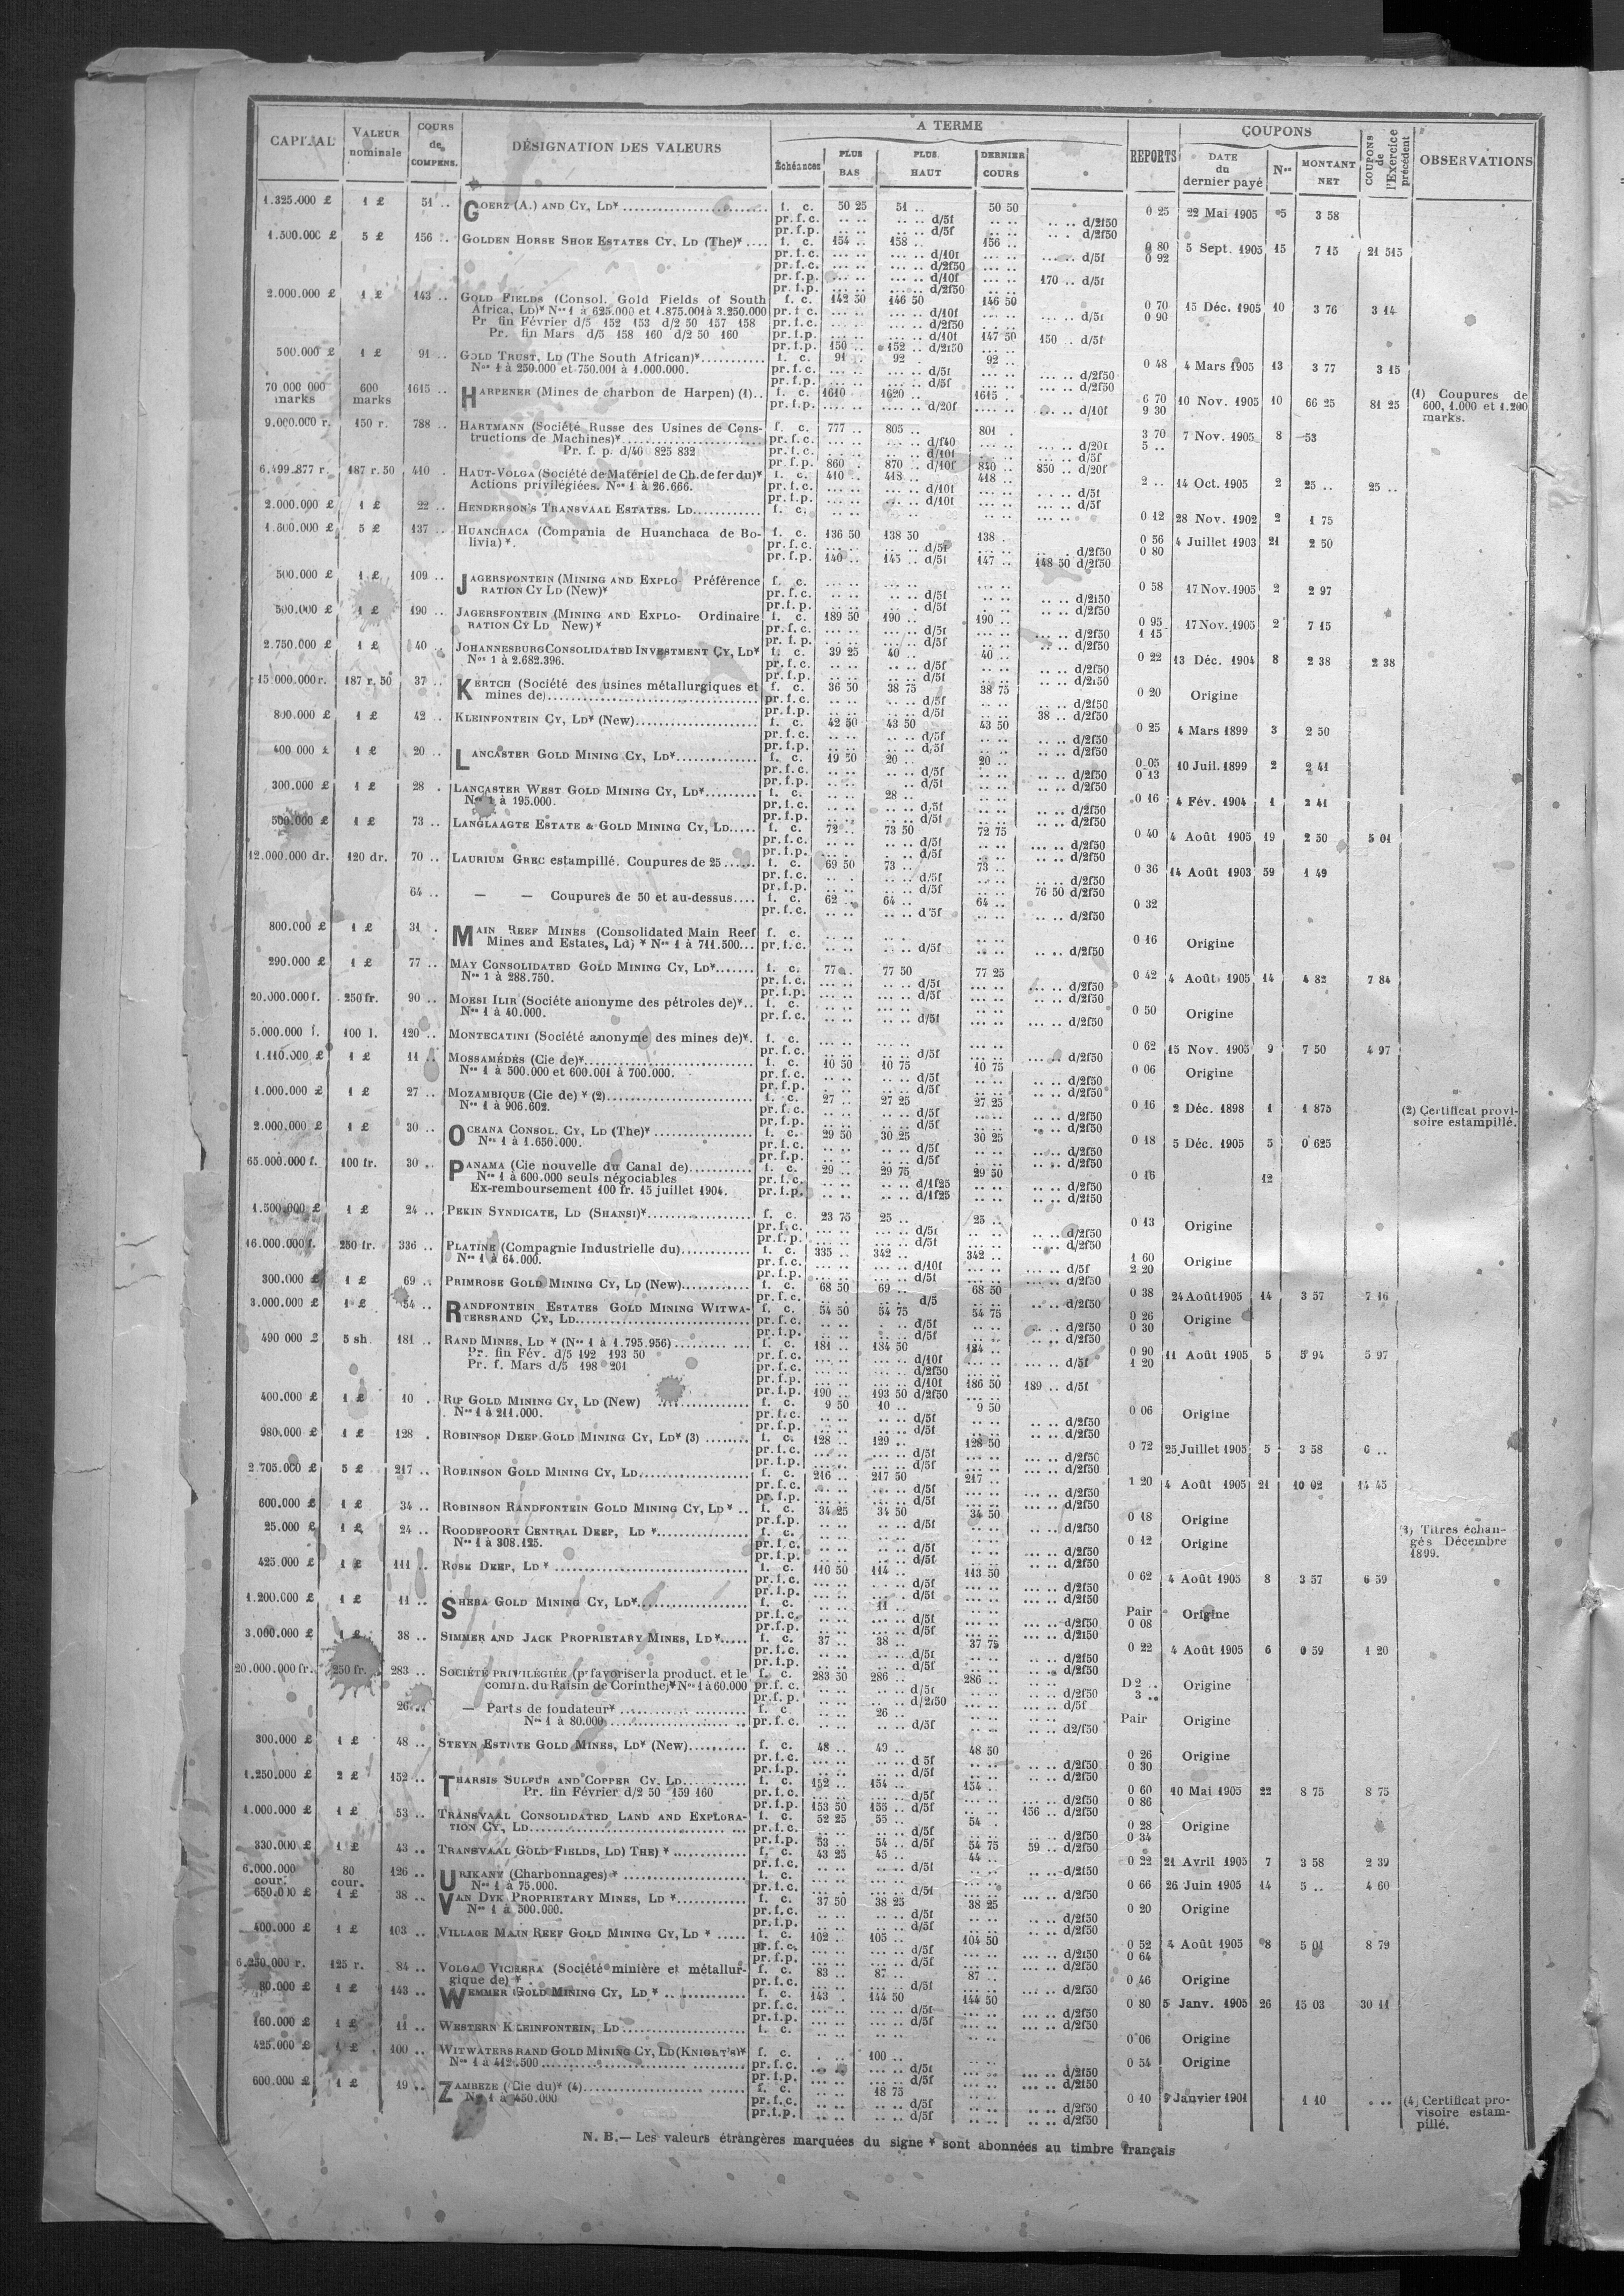 CAPITAL VALEUR nominale COURS de COMPENS. DÉSIGNATION DES VALEURS A TERME REPORTS COUPONS COUPONS de l'Exercice précédent OBSERVATIONS
Échéances PLUS BAS PLUS HAUT DERNIER COURS DATE du dernier payé Nos MONTANT NET
1.325.000 £ 1 £ 51 .. GOERZ (A.) AND CY, LD* f. c. 50 25 51 .. 50 50 0 25 22 Mai 1905 5 3 58
pr. f. c. .. .. .. .. d/5f .. .. .. .. d/2f50
pr. f. p. .. .. .. .. d/5f .. .. .. .. d/2f50
1.500.000 £ 5 £ 156 .. GOLDEN HORSE SHOE ESTATES CY, LD (The)* f. c. 154 .. 158 .. 156 .. 0 80 0 92 5 Sept. 1905 15 7 15 21 515
pr. f. c. d/10f d/5f
pr. f. c. d/2f50
pr. f. p. d/10f 170 .. d/5f
pr. f. p. d/2f50
2.000.000 £ 1 £ 143 .. GOLD FIELDS (Consol. Gold Fields of South f. c. 142 50 146 50 146 50 0 70 0 90 15 Déc. 1905 10 3 76 3 14
Africa, LD)* Nos 1 à 625.000 et 1.875.001 à 3.250.000 pr. f. c. d/10f d/5f
Pr fin Février d/5 152 153 d/2 50 157 158 pr. f. c. d/2f50
Pr. fin Mars d/5 158 160 d/2 50 160 pr. f. p. d/10f 147 50 150 .. d/5f
pr. f. p. 150 .. 152 .. d/2f50
500.000 £ 1 £ 91 .. GOLD TRUST, LD (The South African)* f. c. 91 .. 92 .. 92 .. 0 48 4 Mars 1905 13 3 77 3 15
Nos 1 à 250.000 et 750.001 à 1.000.000. pr. f. c. d/5f d/2f50
pr. f. p. d/5f d/2f50
70 000 000 marks 600 marks 1615 .. HARPENER (Mines de charbon de Harpen) (1) f. c. 1610 .. 1620 .. 1615 .. 6 70 9 30 10 Nov. 1905 10 66 25 81 25 (1) Coupures de 600, 1.000 et 1.200 marks.
pr. f. p. d/20f d/10f
9.000.000 r. 150 r. 788 .. HARTMANN (Société Russe des Usines de Cons- f. c. 777 .. 805 .. 801 . 3 70 5 .. 7 Nov. 1905 8 53
tructions de Machines)* pr. f. c. d/f40 d/20f
Pr. f. p. d/40 825 832 pr. f. c. d/10f d/5f
pr. f. p. 860 . 870 .. d/10f 840 .. 850 .. d/20f
6.499.877 r. 187 r. 50 410 .. HAUT-VOLGA (Société de Matériel de Ch. de fer du)* f. c. 410 .. 418 .. 418 .. 2 .. 14 Oct. 1905 2 25 .. 25 ..
Actions privilégiées. Nos 1 à 26.666. pr. f. c. d/10f d/5f
pr. f. p. d/10f d/5f
2.000.000 £ 1 £ 22 .. HENDERSON'S TRANSVAAL ESTATES. LD f. c. 0 12 28 Nov. 1902 2 1 75
1.600.000 £ 5 £ 137 .. HUANCHACA (Compania de Huanchaca de Bo- f. c. 136 50 138 50 138 . 0 56 0 80 4 Juillet 1903 21 2 50
livia)*. pr. f. c. d/5f d/2f50
pr. f. p. 140 .. 145 .. d/5f 147 .. 148 50 d/2f50
500.000 £ 1 £ 109 .. JAGERSFONTEIN (MINING AND EXPLO- Préférence f. c. 0 58 17 Nov. 1905 2 2 97
RATION CY LD (New)* pr. f. c. d/5f d/2f50
pr. f. p. d/5f d/2f50
500.000 £ 1 £ 190 .. JAGERSFONTEIN (MINING AND EXPLO- Ordinaire f. c. 189 50 190 .. 190 .. 0 95 1 15 17 Nov. 1905 2 7 15
RATION CY LD New)* pr. f. c. d/5f d/2f50
pr. f. p. d/5f d/2f50
2.750.000 £ 1 £ 40 .. JOHANNESBURG CONSOLIDATED INVESTMENT CY, LD* f. c. 39 25 40 .. 40 .. 0 22 13 Déc. 1904 8 2 38 2 38
Nos 1 à 2.682.396. pr. f. c. d/5f d/2f50
pr. f. p. d/5f d/2f50
15 000.000 r. 187 r. 50 37 .. KERTCH (Société des usines métallurgiques et f. c. 36 50 38 75 38 75 0 20 Origine
mines de) pr. f. c. d/5f d/2f50
pr. f. p. d/5f 38 .. d/2f50
800.000 £ 1 £ 42 .. KLEINFONTEIN CY, LD* (New) f. c. 42 50 43 50 43 50 0 25 4 Mars 1899 3 2 50
pr. f. c. d/5f d/2f50
pr. f. p. d/5f d/2f50
400 000 £ 1 £ 20 .. LANCASTER GOLD MINING CY, LD* f. c. 19 50 20 .. 20 .. 0 05 0 13 10 Juil. 1899 2 2 41
pr. f. c. d/5f d/2f50
pr. f. p. d/5f d/2f50
300.000 £ 1 £ 28 . LANCASTER WEST GOLD MINING CY, LD* f. c. 28 .. 0 16 4 Fév. 1904 1 2 41
Nos 1 à 195.000. pr. f. c. d/5f d/2f50
pr. f. p. d/5f d/2f50
500.000 £ 1 £ 73 .. LANGLAAGTE ESTATE & GOLD MINING CY, LD f. c. 72 .. 73 50 72 75 0 40 4 Août 1905 19 2 50 5 01
pr. f. c. d/5f d/2f50
pr. f. p. d/5f d/2f50
12.000.000 dr. 120 dr. 70 .. LAURIUM GREC estampillé. Coupures de 25 f. c. 69 50 73 .. 73 .. 0 36 14 Août 1903 59 1 49
pr. f. c. d/5f d/2f50
pr. f. p. d/5f 76 50 d/2f50
64 .. — — Coupures de 50 et au-dessus f. c. 62 .. 64 .. 64 .. 0 32
pr. f. c. d/5f d/2f50
800.000 £ 1 £ 31 . MAIN REEF MINES (Consolidated Main Reef f. c. 0 16 Origine
Mines and Estates, Ld) * Nos 1 à 711.500 pr. f. c. d/5f d/2f50
290.000 £ 1 £ 77 .. MAY CONSOLIDATED GOLD MINING CY, LD* f. c. 77 .. 77 50 77 25 0 42 4 Août 1905 14 4 82 7 84
Nos 1 à 288.750. pr. f. c. d/5f d/2f50
pr. f. p. d/5f d/2f50
20.000.000 f. 250 fr. 90 .. MOESI ILIR (Sociéte anonyme des pétroles de)* f. c. 0 50 Origine
Nos 1 à 40.000. pr. f. c. d/5f d/2f50
5.000.000 f. 100 l. 120 .. MONTECATINI (Société anonyme des mines de)*. f. c. 0 62 15 Nov. 1905 9 7 50 4 97
pr. f. c. d/5f d/2f50
1.110.000 £ 1 £ 11 .. MOSSAMÉDÈS (Cie de)* f. c. 10 50 10 75 10 75 0 06 Origine
Nos 1 à 500.000 et 600.001 à 700.000. pr. f. c. d/5f d/2f50
pr. f. p. d/5f d/2f50
1.000.000 £ 1 £ 27 .. MOZAMBIQUE (Cie de) * (2) f. c. 27 .. 27 25 27 25 0 16 2 Déc. 1898 1 1 875 (2) Certificat provi-
Nos 1 à 906.602. pr. f. c. d/5f d/2f50 soire estampillé.
pr. f. p. d/5f d/2f50
2.000.000 £ 1 £ 30 .. OCEANA CONSOL. CY, LD (The)* f. c. 29 50 30 25 30 25 0 18 5 Déc. 1905 5 0 625
Nos 1 à 1.650.000. pr. f. c. d/5f d/2f50
pr. f. p. d/5f d/2f50
65.000.000 f. 100 fr. 30 .. PANAMA (Cie nouvelle du Canal de) f. c. 29 .. 29 75 29 50 0 16 12
Nos 1 à 600.000 seuls négociables pr. f. c. d/1f25 d/2f50
Ex-remboursement 100 fr. 15 juillet 1904. pr. f. p. d/1f25 d/2f50
1.500.000 £ 1 £ 24 .. PEKIN SYNDICATE, LD (SHANSI)* f. c. 23 75 25 .. 25 .. 0 13 Origine
pr. f. c. d/5f d/2f50
pr. f. p. d/5f d/2f50
16.000.000 f. 250 fr. 336 .. PLATINE (Compagnie Industrielle du) f. c. 335 .. 342 .. 342 .. 1 60 2 20 Origine
Nos 1 à 64.000. pr. f. c. d/10f d/5f
pr. f. p. d/5f d/2f50
300.000 £ 1 £ 69 .. PRIMROSE GOLD MINING CY, LD (New) f. c. 68 50 69 .. 68 50 0 38 24 Août 1905 14 3 57 7 16
pr. f. c. d/5 d/2f50
3.000.000 £ 1 £ 54 .. RANDFONTEIN ESTATES GOLD MINING WITWA- f. c. 54 50 54 75 54 75 0 26 0 30 Origine
TERSRAND CY, LD pr. f. c. d/5f d/2f50
pr. f. p. d/5f d/2f50
490 000 £ 5 sh 181 .. RAND MINES, LD * (Nos 1 à 1.795.956) f. c. 181 .. 184 50 184 .. 0 90 1 20 11 Août 1905 5 5 94 5 97
Pr. fin Fév. d/5 192 193 50 pr. f. c. d/10f d/5f
Pr. f. Mars d/5 198 201 pr. f. c. d/2f50
pr. f. p. d/10f 186 50 189 .. d/5f
pr. f. p. 190 .. 193 50 d/2f50
400.000 £ 1 £ 10 . RIP GOLD MINING CY, LD (New) f. c. 9 50 10 .. 9 50 0 06 Origine
Nos 1 à 211.000. pr. f. c. d/5f d/2f50
pr. f. p. d/5f d/2f50
980.000 £ 1 £ 128 . ROBINSON DEEP GOLD MINING CY, LD* (3) f. c. 128 .. 129 .. 128 50 0 72 25 Juillet 1905 5 3 58 6 ..
pr. f. c. d/5f d/2f50
pr. f. p. d/5f d/2f50
2.705.000 £ 5 £ 217 .. ROBINSON GOLD MINING CY, LD f. c. 216 .. 217 50 217 .. 1 20 4 Août 1905 21 10 02 14 45
pr. f. c. d/5f d/2f50
pr. f. p. d/5f d/2f50
600.000 £ 1 £ 34 .. ROBINSON RANDFONTEIN GOLD MINING CY, LD * f. c. 34 25 34 50 34 50 0 18 Origine
pr. f. p. d/5f d/2f50
25.000 £ 1 £ 24 .. ROODEPOORT CENTRAL DEEP, LD * f. c. 0 12 Origine (3) Titres échan-
Nos 1 à 308.125. pr. f. c. d/5f d/2f50 gés Décembre
pr. f. p. d/5f d/2f50 1899.
425.000 £ 1 £ 111 .. ROSE DEEP, LD * f. c. 110 50 114 .. 113 50 0 62 4 Août 1905 8 3 57 6 59
pr. f. c. d/5f d/2f50
pr. f. p. d/5f d/2f50
1.200.000 £ 1 £ 11 .. SHEBA GOLD MINING CY, LD* f. c. 11 .. Pair 0 08 Origine
pr. f. c. d/5f d/2f50
pr. f. p. d/5f d/2f50
3.000.000 £ 1 £ 38 .. SIMMER AND JACK PROPRIETARY MINES, LD* f. c. 37 .. 38 .. 37 75 0 22 4 Août 1905 6 0 59 1 20
pr. f. c. d/5f d/2f50
pr. f. p. d/5f d/2f50
20.000.000 fr. 250 fr. 283 .. SOCIÉTÉ PRIVILÉGIÉE (pr favoriser la product. et le f. c. 283 50 286 .. 286 .. D 2 .. 3 .. Origine
comm. du Raisin de Corinthe)* Nos 1 à 60.000 pr. f. c. d/5f d/2f50
pr. f. p. d/2f50 d/5f
26 .. — Parts de fondateur* f. c. 26 .. Pair Origine
Nos 1 à 80.000 pr. f. c. d/5f d2/f50
300.000 £ 1 £ 48 .. STEYN ESTATE GOLD MINES, LD* (New) f. c. 48 .. 49 .. 48 50 0 26 0 30 Origine
pr. f. c. d 5f d/2f50
pr. f. p. d/5f d/2f50
1.250.000 £ 2 £ 152 .. THARSIS SULFUR AND COPPER CY, LD f. c. 152 .. 154 .. 154 .. 0 60 0 86 10 Mai 1905 22 8 75 8 75
Pr. fin Février d/2 50 159 160 pr. f. c. d/5f d/2f50
pr. f. p. 153 50 155 .. d/5f 156 .. d/2f50
1.000.000 £ 1 £ 53 .. TRANSVAAL CONSOLIDATED LAND AND EXPLORA- f. c. 52 25 55 .. 54 . 0 28 0 34 Origine
TION CY, LD pr. f. c. d/5f d/2f50
pr. f. p. 53 .. 54 .. d/5f 54 75 59 .. d/2f50
330.000 £ 1 £ 43 .. TRANSVAAL GOLD FIELDS, LD) THE) * f. c. 43 25 45 .. 44 .. 0 22 21 Avril 1905 7 3 58 2 39
pr. f. c. d/5f d/2f50
6.000.000 cour. 80 cour. 126 .. URIKANY (Charbonnages) * f. c. 0 66 26 Juin 1905 14 5 .. 4 60
Nos 1 à 75.000. pr. f. c. d/5f d/2f50
650.000 £ 1 £ 38 .. VAN DYK PROPRIETARY MINES, LD * f. c. 37 50 38 25 38 25 0 20 Origine
Nos 1 à 500.000. pr. f. c. d/5f d/2f50
pr. f. p. d/5f d/2f50
400.000 £ 1 £ 103 .. VILLAGE MAIN REEF GOLD MINING CY, LD * f. c. 102 .. 105 .. 104 50 0 52 0 64 4 Août 1905 8 5 01 8 79
pr. f. c. d/5f d/2f50
pr. f. p. d/5f d/2f50
6.250.000 r. 125 r. 84 .. VOLGA VICHERA (Société minière et métallur- f. c. 83 .. 87 .. 87 .. 0 46 Origine
gique de) * pr. f. c. d/5f d/2f50
80.000 £ 1 £ 143 .. WEMMER GOLD MINING CY, LD * f. c. 143 . 144 50 144 50 0 80 5 Janv. 1905 26 15 03 30 11
pr. f. c. d/5f d/2f50
pr. f. p. d/5f d/2f50
160.000 £ 1 £ 11 .. WESTERN KLEINFONTEIN, LD f. c. 0 06 Origine
425.000 £ 1 £ 100 .. WITWATERSRAND GOLD MINING CY, LD (KNIGHT'S)* f. c. 100 .. 0 54 Origine
Nos 1 à 412.500 pr. f. c. d/5f d/2f50
pr. f. p. d/5f d/2f50
600.000 £ 1 £ 19 .. ZAMBEZE (Cie du)* (4) f. c. 18 75 0 10 9 Janvier 1901 1 10 (4) Certificat pro-
Nos 1 à 450.000 pr. f. c. d/5f d/2f50 visoire estam-
pr. f. p. d/5f d/2f50 pillé.
N. B.— Les valeurs étrangères marquées du signe * sont abonnées au timbre français